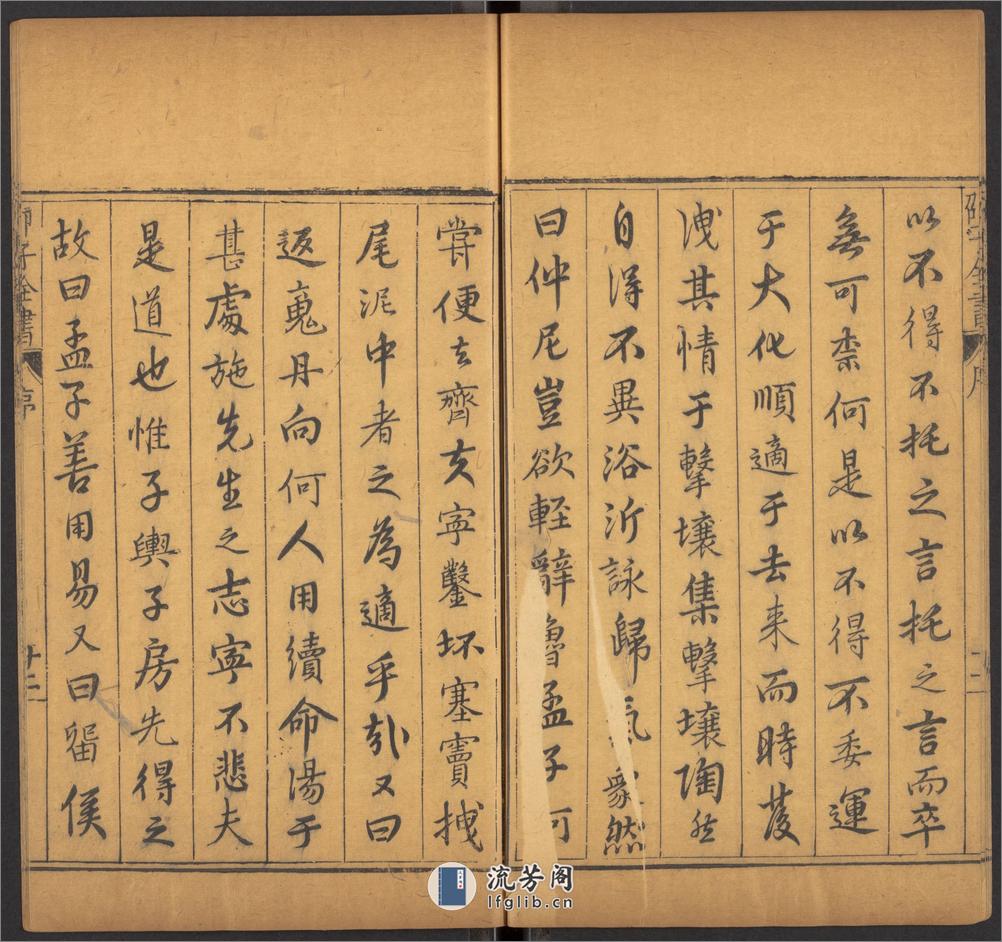 邵子全書 序 十二
以不得不托之言托之言而卒
無可柰何是以不得不委運
于大化順適于去来而時發
洩其情于擊壤集擊壤陶然
自得不異浴沂詠歸氣象然
曰仲尼豈欲輕辭魯孟子何
嘗便去齊去寧鑿坏塞竇拽
尾泥中者之為適乎於又曰
返魂丹向何人用續命湯于
甚處施先生之志寧不悲夫
是道也惟子輿子房先得之
故曰孟子善用易又曰留侯
邵子全書 序 十二
流芳阁
lfglib.cn